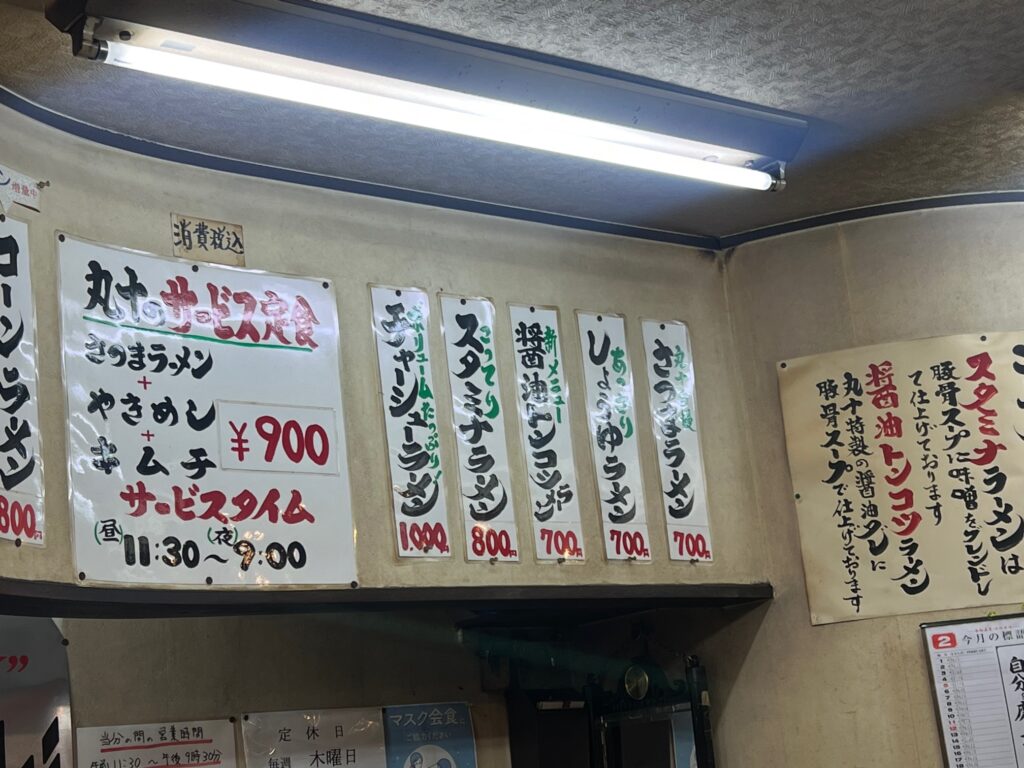 増量中
コーンラーメン
800円
消費税込
丸十のサービス定食
さつまラメン
+
やきめし
+
キムチ
¥900
サービスタイム
(昼) (夜)
11:30～9:00
ボリュームたっぷり
チャーシューラーメン
1.000円
こってり
スタミナラーメン
800円
新メニュー
醤油トンコツラーメン
700円
あっさり
しょうゆラーメン
700円
さつまラーメン
700円
スタミナラーメンは
豚骨スープに味噌をブレンドし
て仕上げております
醤油トンコツラーメン
丸十特製の醤油ダレに
豚骨スープで仕上げております
2 今月の標語
自分
当分の間の営業時間
午前11:30～午後9時30分
定休日
毎週 木曜日
マスク会食
ご協力ください